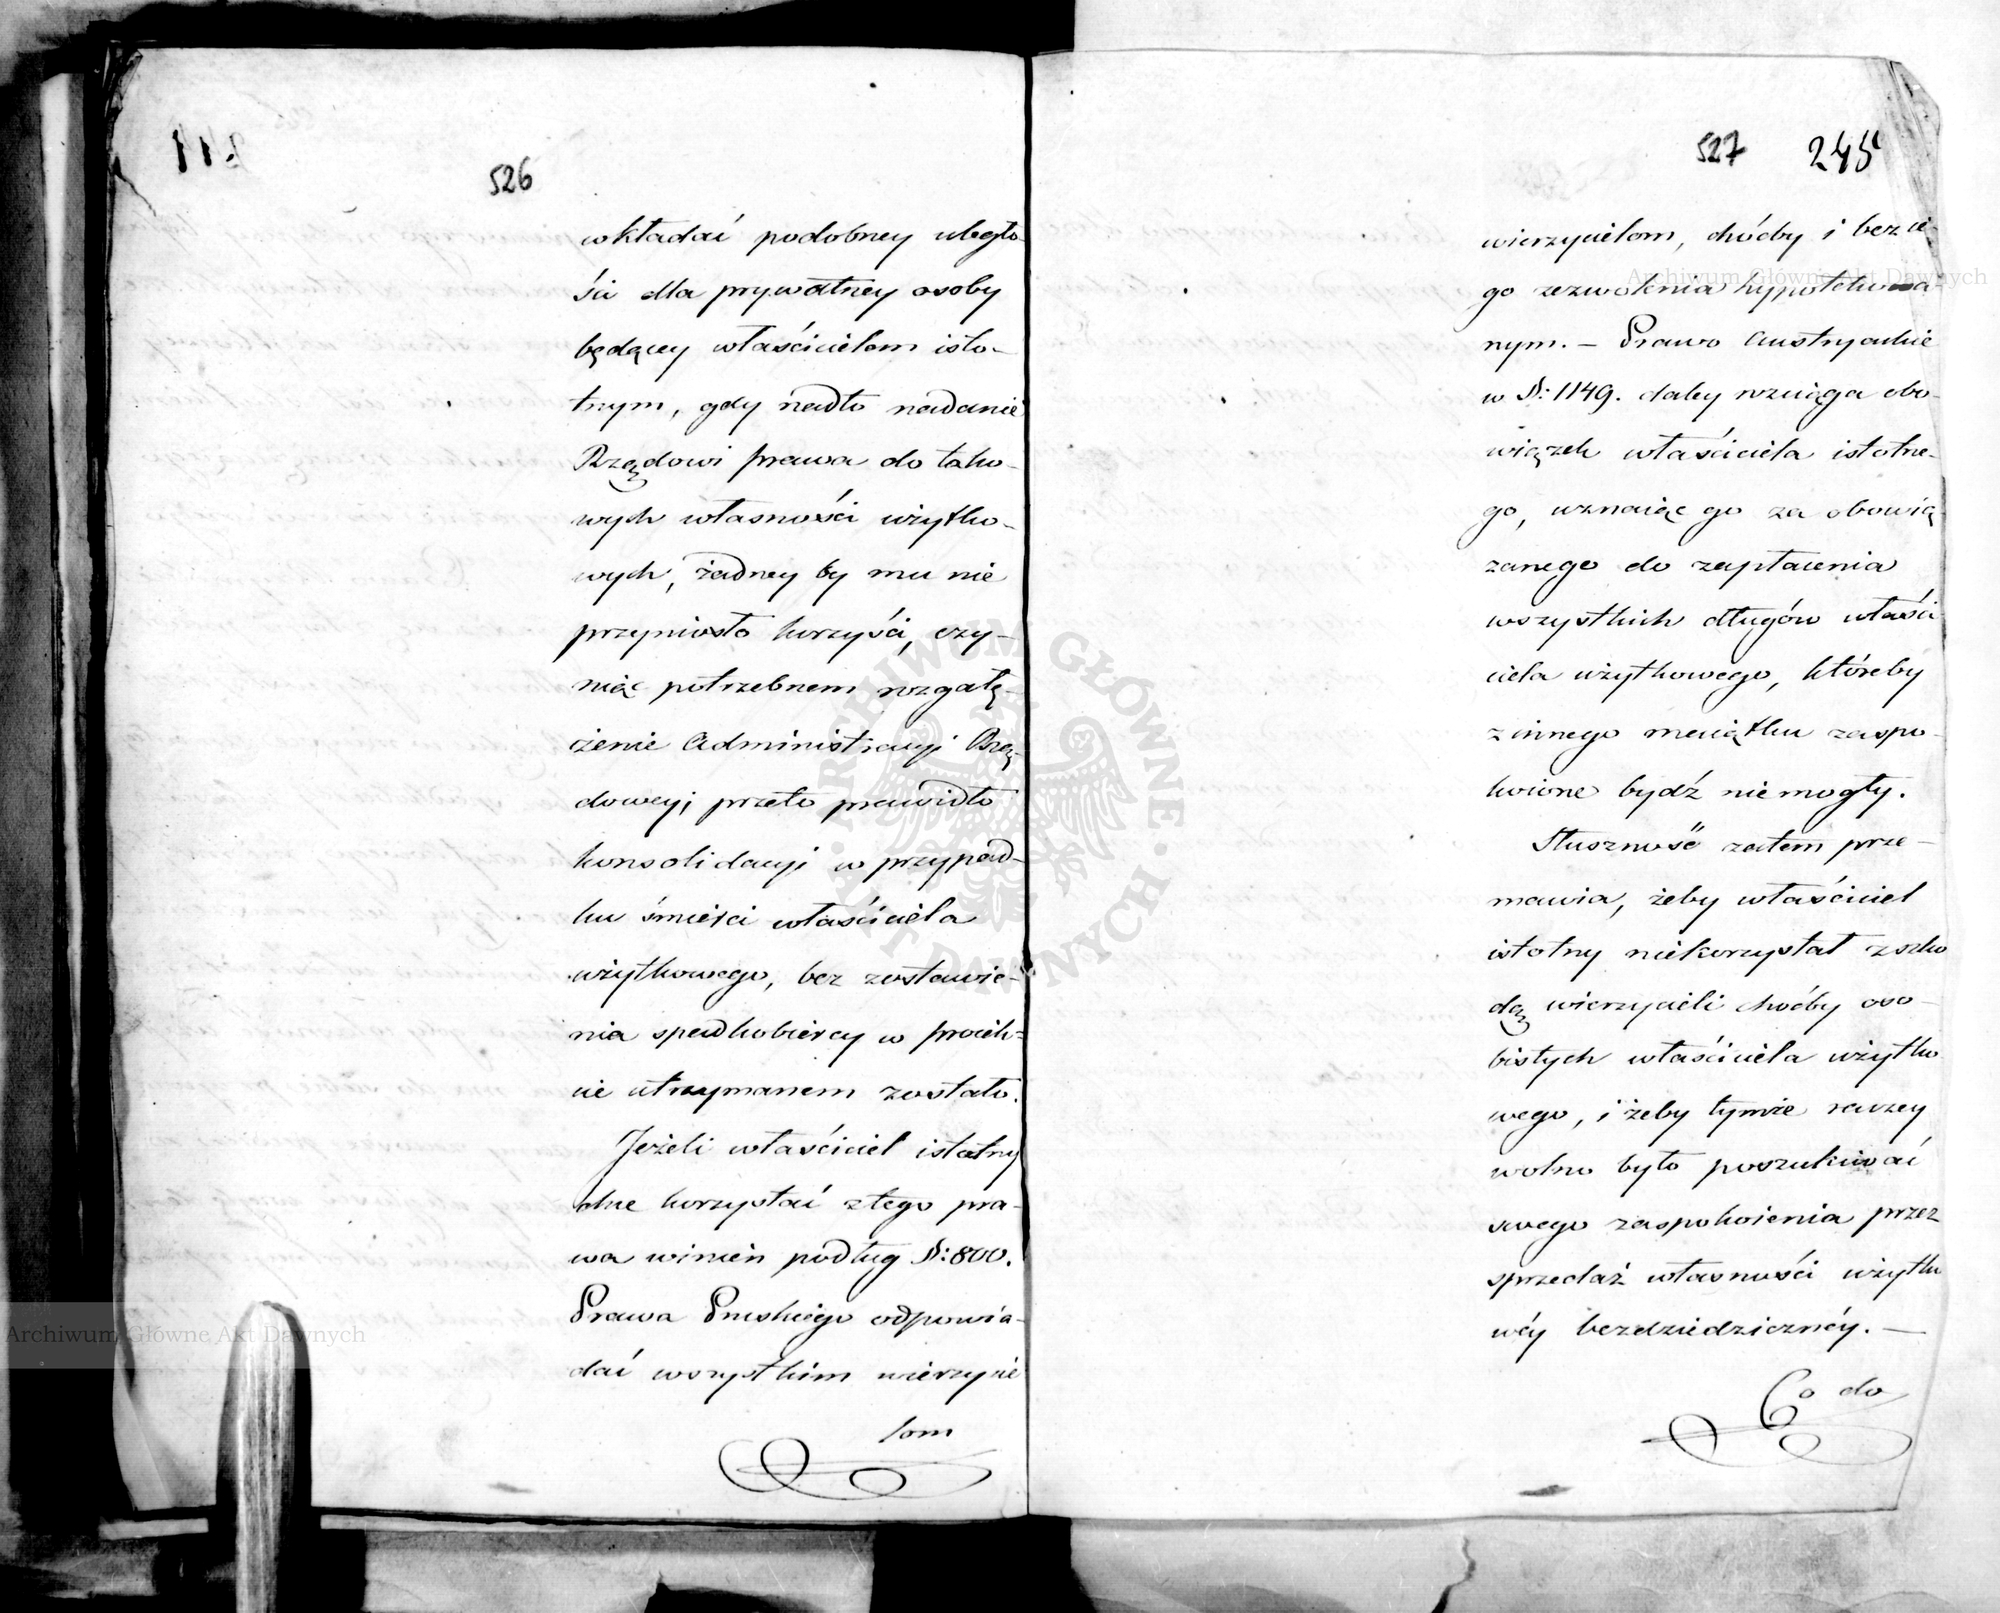 526
wkładać podobney uległo-
ści dla prywatney osoby
będącey właścicielem isto-
tnym, gdy nadto nadanie
Rządowi prawa do tako-
wych własności użytko-
wych, żadney by mu nie
przyniosło korzyści, czy-
niąc potrzebnem rozgałę-
żenie Administracyi Rzą-
dowey; przeto prawidło
konsolidacyi w przypad-
ku śmierci właściciela
użytkowego, bez zostawie-
nia spadkobiercy w proiek-
cie utrzymanem zostało.
Jeżeli właściciel istotny
chce korzystać z tego pra-
wa winien podług §: 800.
Prawa Pruskiego odpowia-
dać wszystkim wierzycie
lom
527 245
wierzycielom, choćby i bez ie-
go zezwolenia hypotekowa-
nym. – Prawo Austryackie
w §: 1149. daley rozciąga obo-
wiązek właściciela istotne-
go, uznaiąc go za obowią
zanego do zapłacenia
wszystkich długów właści
ciela użytkowego, któreby
z innego maiątku zaspo-
koione bydź nie mogły.
Słuszność zatem prze-
mawia, żeby właściciel
istotny niekorzystał z szko
dą wierzycieli choćby oso-
bistych właściciela użytko
wego, i żeby tymże raczey
wolno było poszukiwać
swego zaspokoienia przez
sprzedaż własności użytko
wéy bezdziedzicznéy. —
Co do
Archiwum Główne Akt Dawnych
Archiwum Główne Akt Dawnych
ARCHIWUM GŁÓWNE AKT DAWNYCH